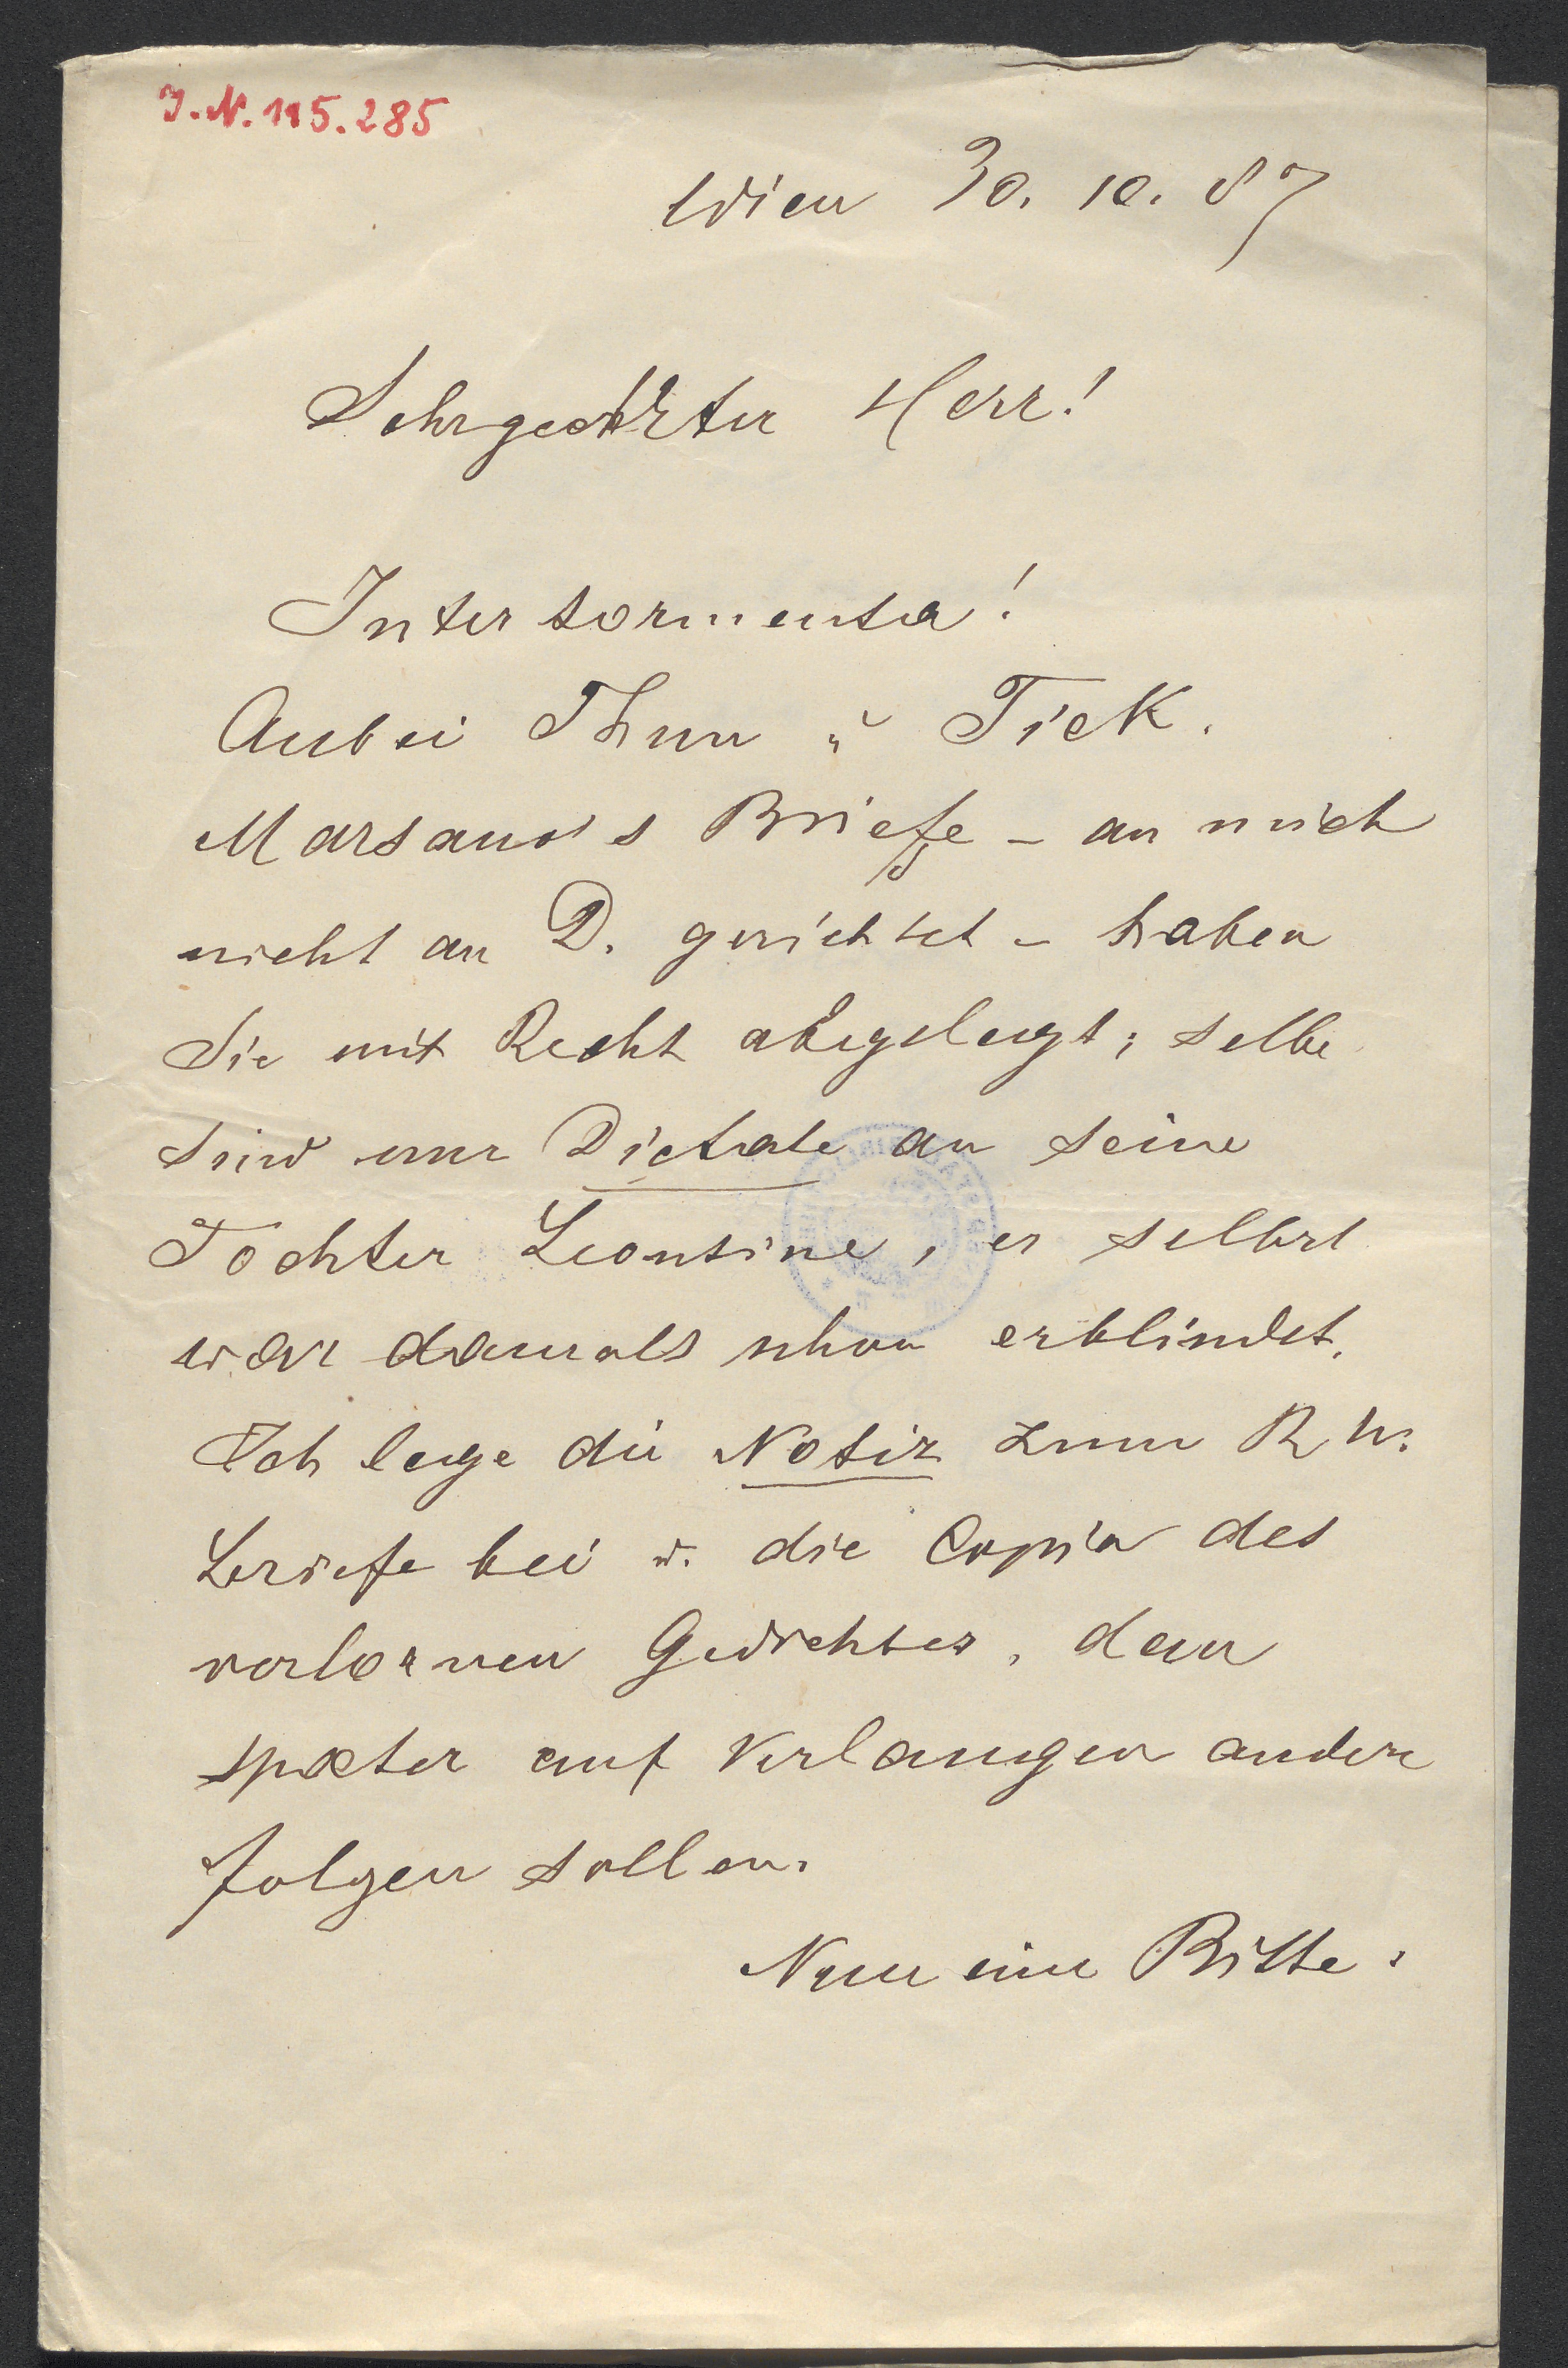 J.N. 115.285
Wien 30. 10. 87
Sehrgeehrter Herr!
Inter tormenta!
Anbei Thun u Tiek.
Marsano's Briefe – an mich
nicht an D. gerichtet – haben
Sie mit Recht abgelegt; selbe
sind nur Dictate an seine
Tochter Leontine, er selbst
war damals schon erblindet.
Ich lege die Notiz zum R W.
Briefe bei u. die Copia des
verlornen Gedichtes, dem
spæter auf Verlangen andere
folgen sollen.
Nun eine Bitte: